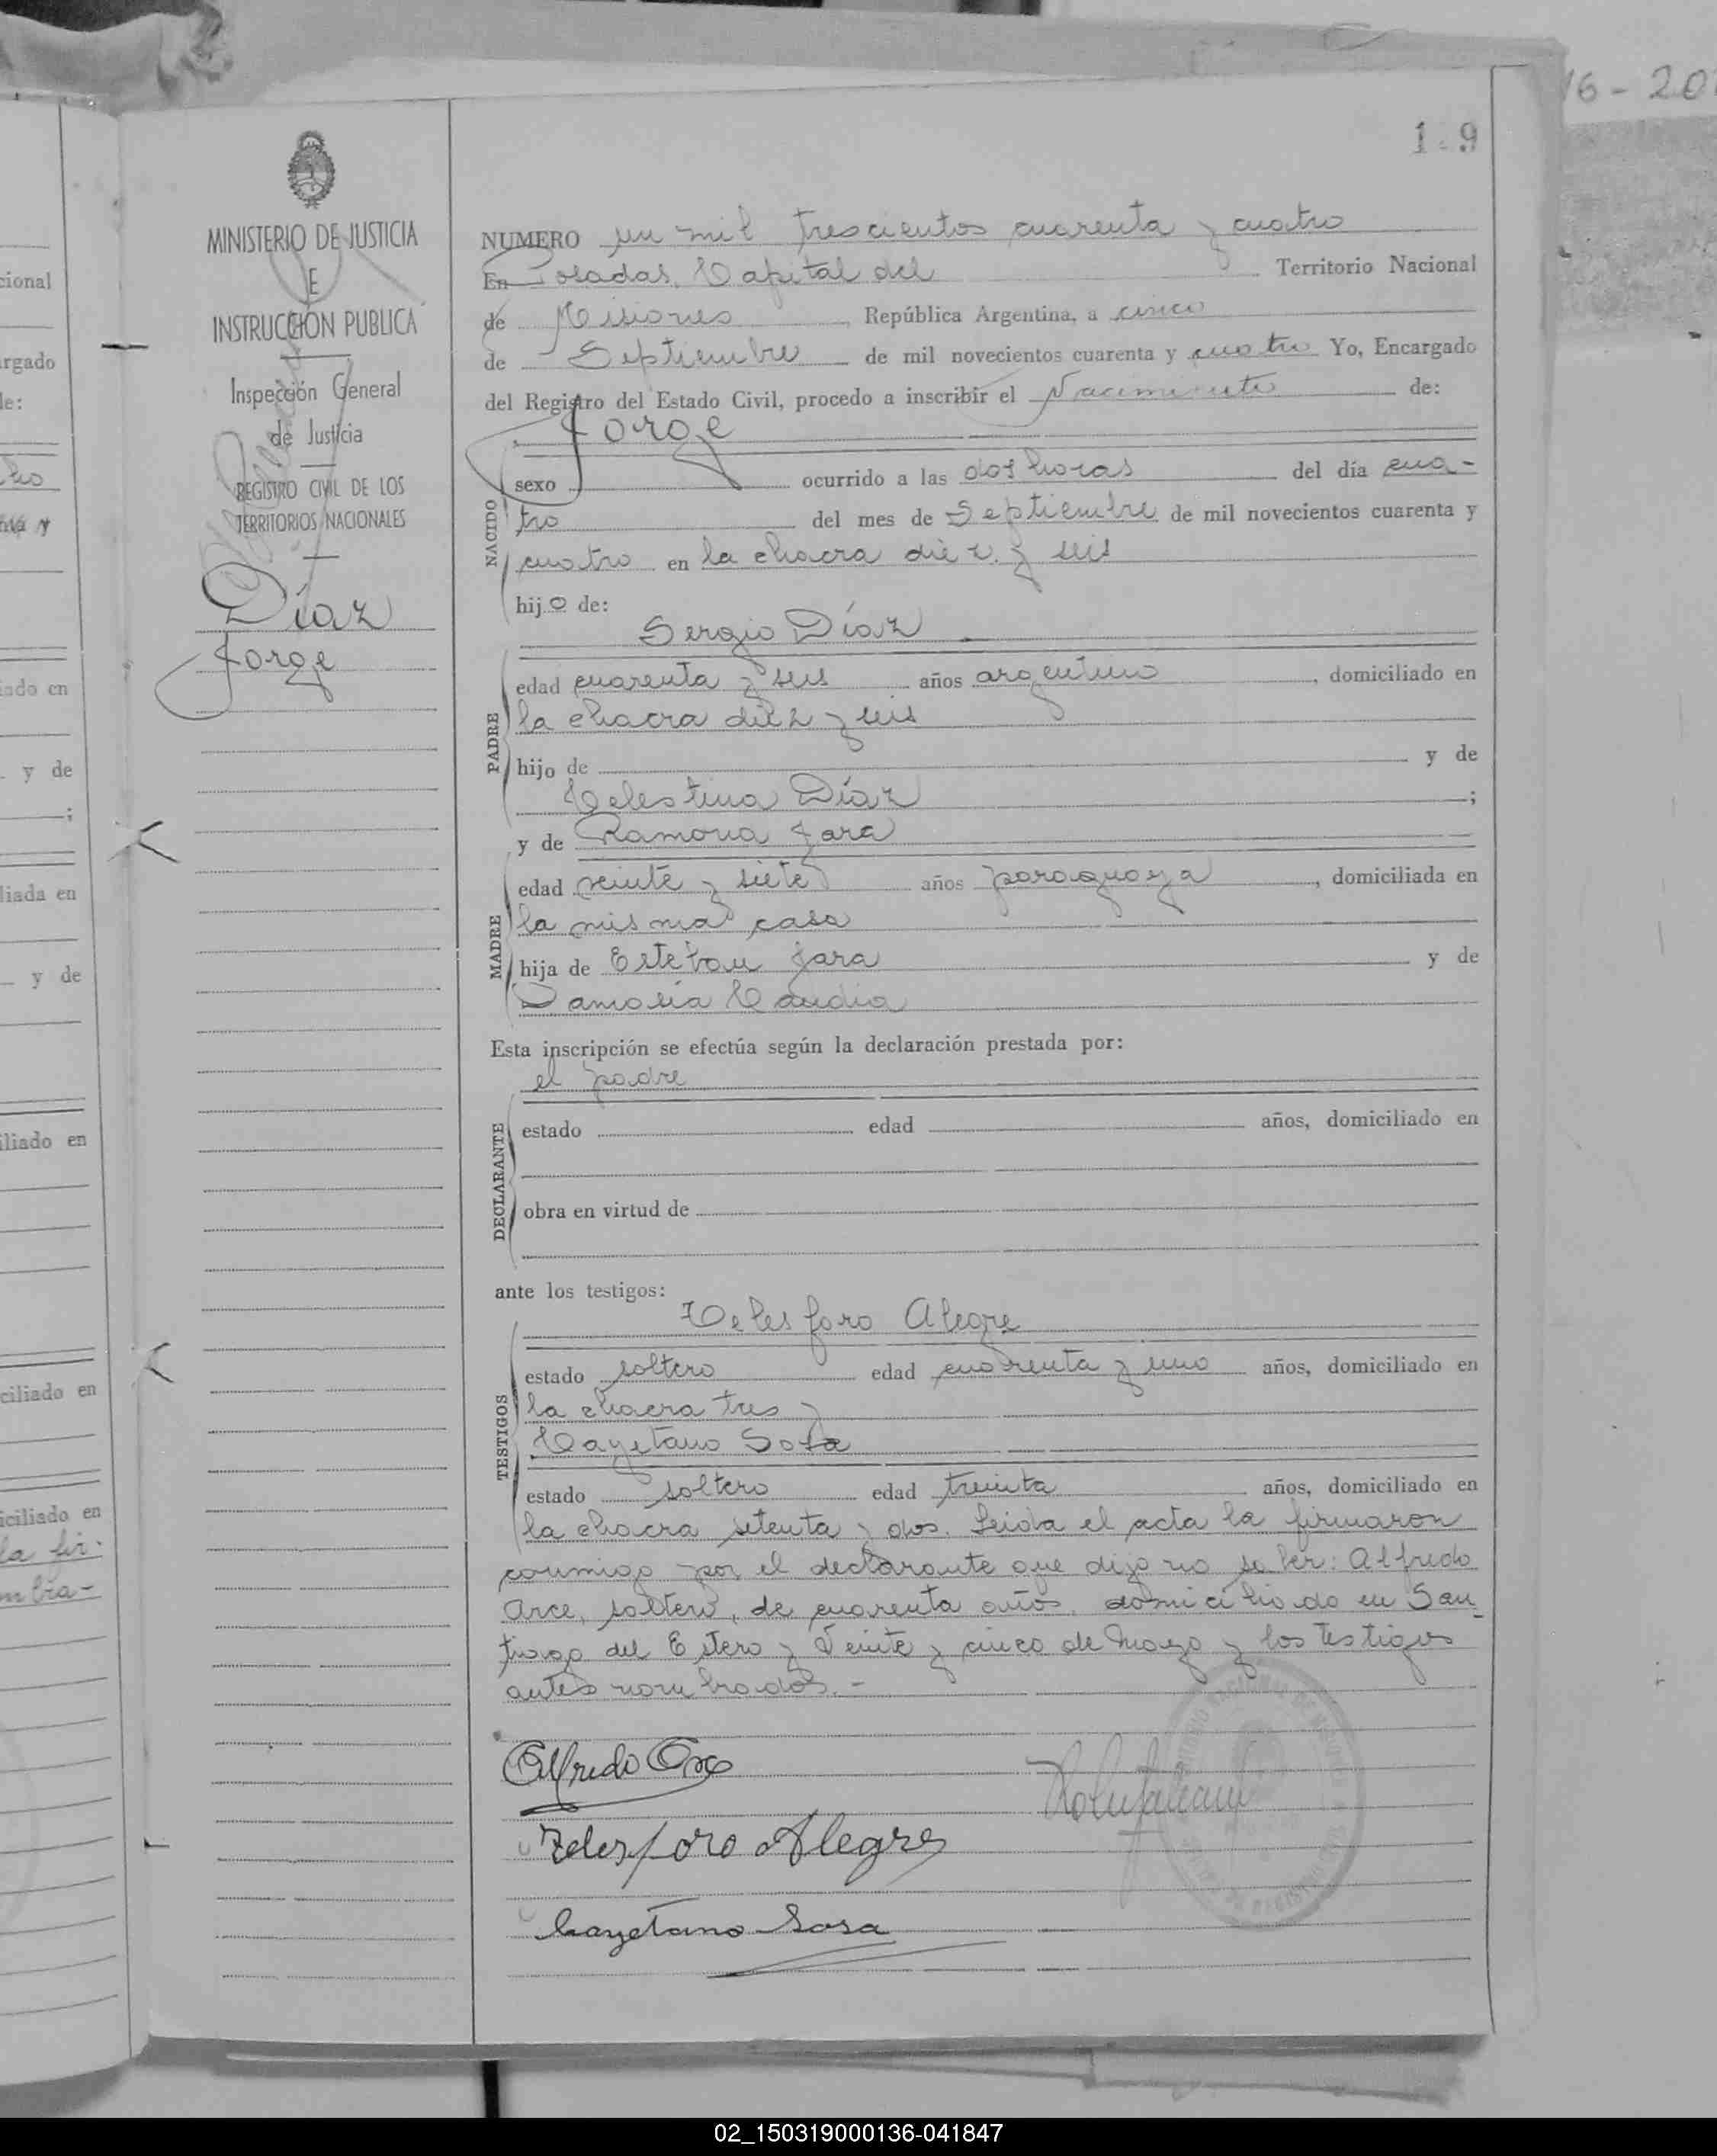 16-20
1 9
MINISTERIO DE JUSTICIA
E
INSTRUCCIÓN PUBLICA
Inspección General
de Justicia
REGISTRO CIVIL DE LOS
TERRITORIOS NACIONALES
Díaz
Jorge
NUMERO un mil trescientos cuarenta y cuatro
En Posadas, Capital del Territorio Nacional
de Misiones República Argentina, a cinco
de Septiembre de mil novecientos cuarenta y cuatro Yo, Encargado
del Registro del Estado Civil, procedo a inscribir el Nacimiento de:
Jorge
NACIDO
sexo ocurrido a las dos horas del día cua-
tro del mes de Septiembre de mil novecientos cuarenta y
cuatro en la chacra diez y seis
hijo de:
Sergio Díaz
PADRE
edad cuarenta y seis años argentino, domiciliado en
la chacra diez y seis
hijo de y de
Celestina Díaz ;
y de Ramona Jara
MADRE
edad veinte y siete años paraguaya, domiciliada en
la misma casa
hija de Esteban Jara y de
Damasia Claudia
Esta inscripción se efectúa según la declaración prestada por:
el padre
DECLARANTE
estado edad años, domiciliado en
obra en virtud de
ante los testigos:
Telesforo Alegre
TESTIGOS
estado soltero edad cuarenta y uno años, domiciliado en
la chacra tres y
Cayetano Sosa
estado soltero edad treinta años, domiciliado en
la chacra setenta y dos. Leida el acta la firmaron
conmigo por el declarante que dijo no saber: Alfredo
Arce, soltero, de cuarenta años, domiciliado en San-
tiago del Estero y Veinte y cinco de Mayo y los testigos
antes nombrados.-
Alfredo Arce
Telesforo Alegre
Cayetano Sosa
cional
rgado
de:
y de
;
liada en
y de
iliado en
ciliado en
iciliado en
la fir-
mbra-
02_150319000136-041847